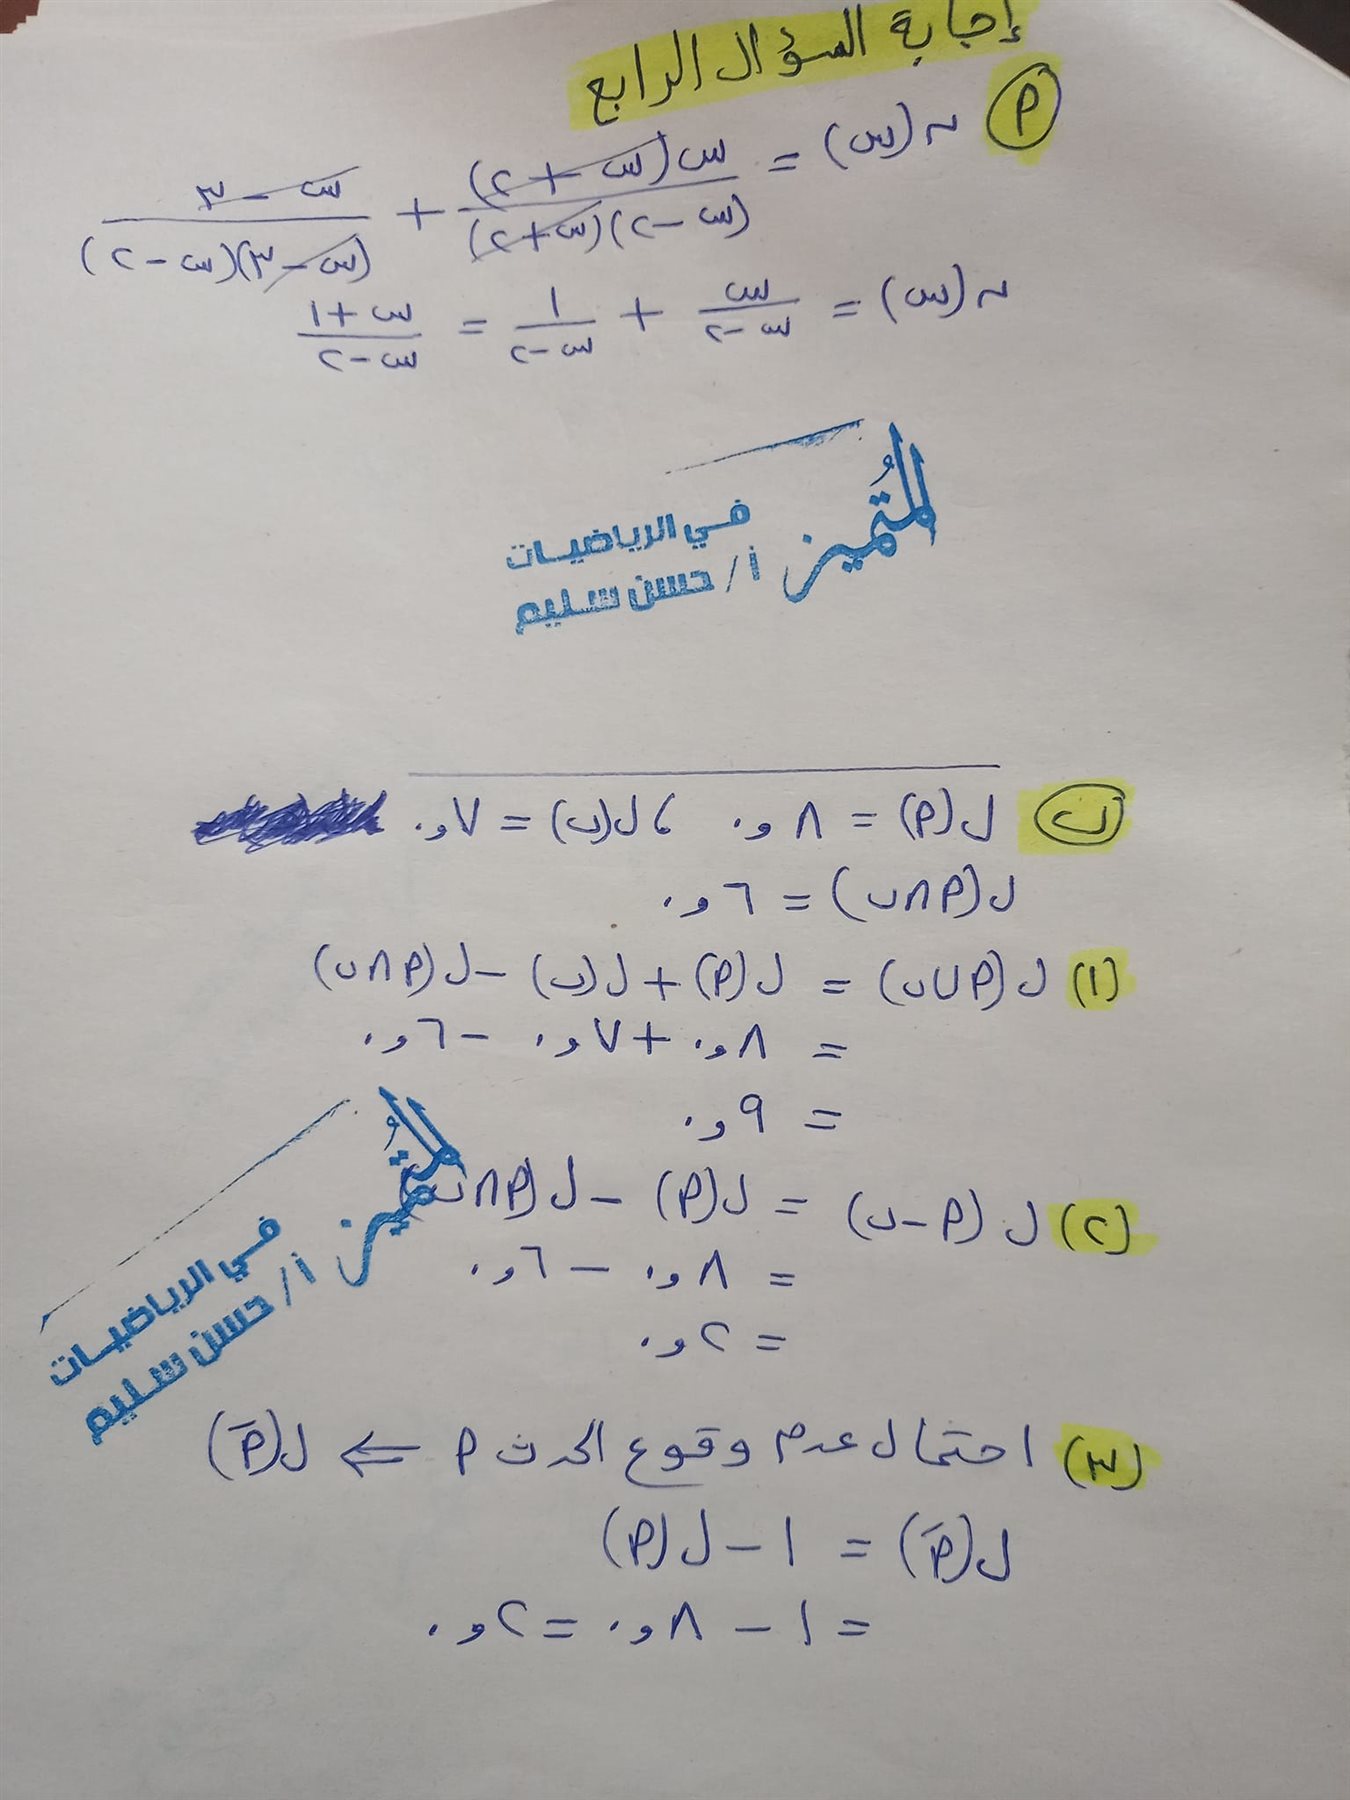 إجابة السؤال الرابع
(أ) ن(س) = س(س+٢)/(س-٢)(س+٢) + س-٣/(س-٣)(س-٢)
ن(س) = س/س-٢ + ١/س-٢ = س+١/س-٢
المُتميز
في الرياضيات
أ/ حسن سليم
(ب) ل(أ) = ٨و٠ ، ل(ب) = ٧و٠
ل(أ∩ب) = ٦و٠
(١) ل(أ∪ب) = ل(أ) + ل(ب) - ل(أ∩ب)
= ٨و٠ + ٧و٠ - ٦و٠
= ٩و٠
(٢) ل(أ-ب) = ل(أ) - ل(أ∩ب)
= ٨و٠ - ٦و٠
= ٢و٠
المُتميز
في الرياضيات
أ/ حسن سليم
(٣) احتمال عدم وقوع الحدث أ ⇐ ل(أَ)
ل(أَ) = ١ - ل(أ)
= ١ - ٨و٠ = ٢و٠